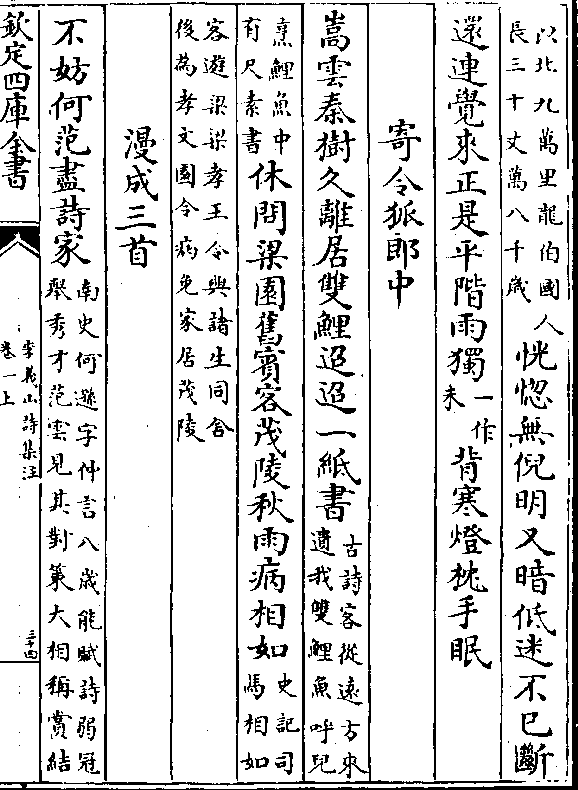 以北九萬里龍伯國人長三十丈萬八千歲恍惚無倪明又暗低迷不已斷
還連覺來正是平階雨獨一作未背寒燈枕手眠
寄令狐郎中
嵩雲秦樹久離居雙鯉迢迢一紙書古詩客從遠方來遺我雙鯉魚呼兒
烹鯉魚中有尺素書休問梁園舊賓客茂陵秋雨病相如史記司馬相如
客遊梁梁孝王令與諸生同舍後為孝文園令病免家居茂陵
漫成三首
不妨何范盡詩家南史何遜字仲言八歲能賦詩弱冠舉秀才范雲見其對策大相稱賞結
欽定四庫全書
李義山詩集注
卷一上
三十四